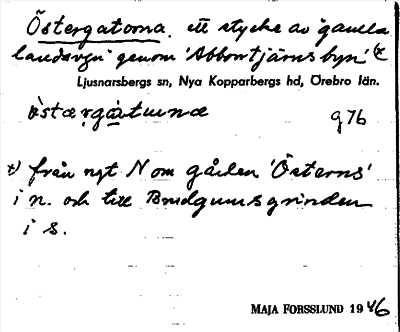 Östergatorna. ett stycke av 'gamla
landsvgn' genom 'Abborrtjärns byn' (x
Ljusnarsbergs sn, Nya Kopparbergs hd, Örebro län.
976
x) från ngt N om gården 'Österns'
i n. och till Brudgumsgrinden
i s.
MAJA FORSSLUND 1946